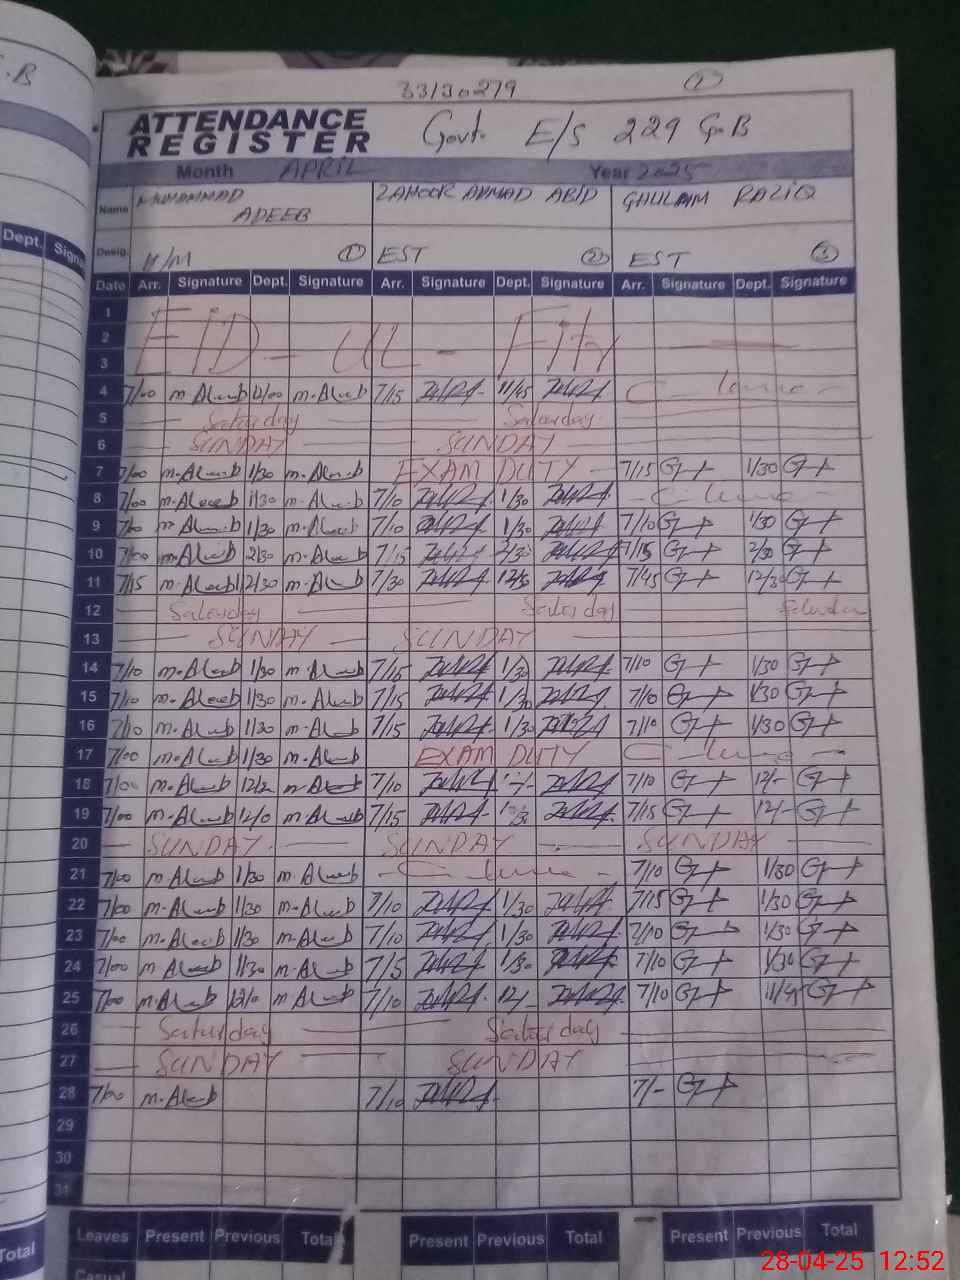 .B
33130279
ATTENDANCE
REGISTER
Govt. E/S 229 G.B
Month APRIL Year 2025
Name MUHAMMAD ADEEB ZAHOOR AHMAD ABID GHULAM
Desig. H/M 1 EST 2 EST 3
Dept. Signa
Date Arr. Signature Dept. Signature Arr. Signature Dept. Signature Arr. Signature Dept. Signature
1
2 EID - UL - Fitr
3
4 7/00 m.Aleeb 12/00 m.Aleeb 7/15 11/45 C-leave
5 Saturday Saturday
6 SUNDAY SUNDAY
7 7/00 m.Aleeb 1/30 m.Aleeb EXAM DUTY 7/15 1/30
8 7/00 m.Aleeb 1/30 m.Aleeb 7/10 1/30 C-leave
9 7/00 m.Aleeb 1/30 m.Aleeb 7/10 1/30 7/10 1/30
10 7/00 m.Aleeb 2/30 m.Aleeb 7/15 2/30 7/15 2/30
11 7/15 m.Aleeb 12/30 m.Aleeb 7/30 12/30 7/45 12/30
12 Saturday Saturday Saturday
13 SUNDAY SUNDAY
14 7/10 m.Aleeb 1/30 m.Aleeb 7/15 1/30 7/10 1/30
15 7/10 m.Aleeb 1/30 m.Aleeb 7/15 1/30 7/10 1/30
16 7/10 m.Aleeb 1/30 m.Aleeb 7/15 1/30 7/10 1/30
17 7/00 m.Aleeb 1/30 m.Aleeb EXAM DUTY C-leave
18 7/00 m.Aleeb m.Aleeb 7/10 7/10 12/-
19 7/00 m.Aleeb m.Aleeb 7/15 7/15 12/-
20 SUNDAY SUNDAY SUNDAY
21 7/00 m.Aleeb 1/30 m.Aleeb C-leave 7/10 1/30
22 7/00 m.Aleeb 1/30 m.Aleeb 7/10 1/30 7/15 1/30
23 7/00 m.Aleeb 1/30 m.Aleeb 7/10 1/30 7/10 1/30
24 7/00 m.Aleeb 1/30 m.Aleeb 7/15 1/30 7/10 1/30
25 7/00 m.Aleeb m.Aleeb 7/10 12/- 7/10 11/45
26 Saturday Saturday
27 SUNDAY SUNDAY
28 7/00 m.Aleeb 7/10 7/-
29
30
31
Total
Leaves Present Previous Total Present Previous Total Present Previous Total
Casual
28-04-25 12:52